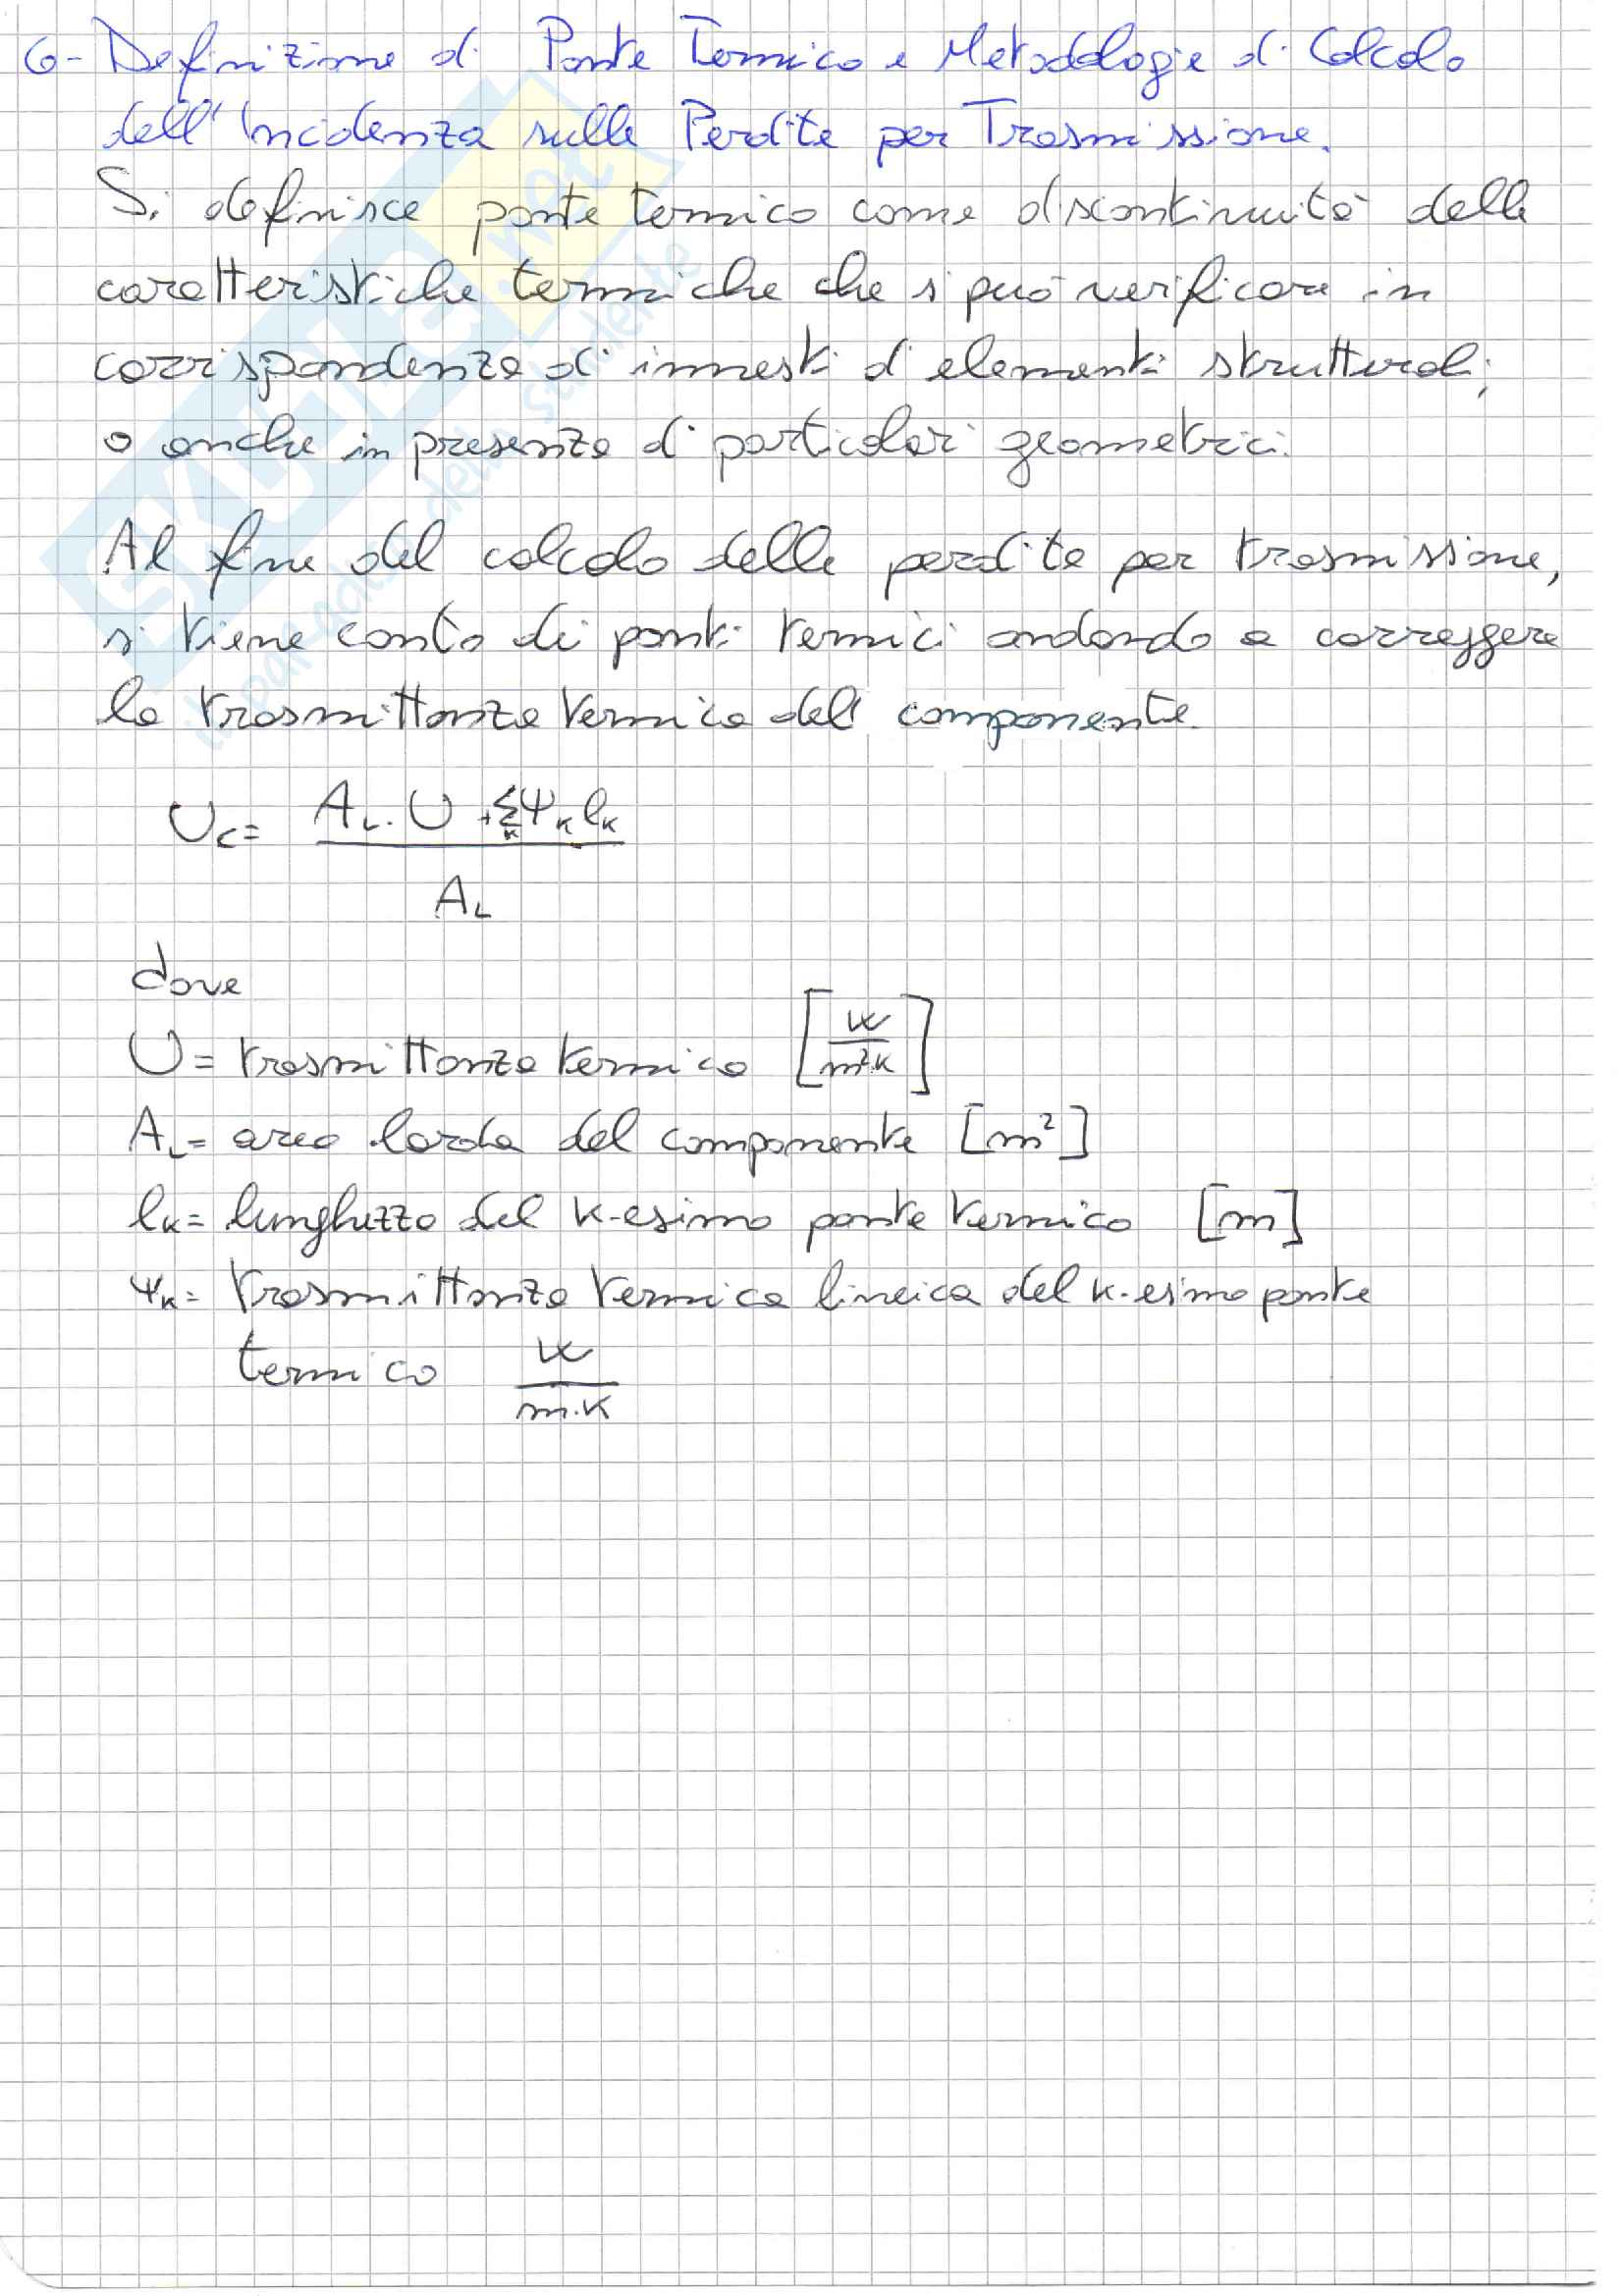 6- Definizione di Ponte Termico e Metodologie di Calcolo
dell'Incidenza sulle Perdite per Trasmissione.
Si definisce ponte termico come discontinuità delle
caratteristiche termiche che si può verificare in
corrispondenza di innesti di elementi strutturali;
o anche in presenza di particolari geometrici.
Al fine del calcolo delle perdite per trasmissione,
si tiene conto di ponti termici andando a correggere
la trasmittanza termica del componente.
U_c = (A_L · U + Σ_k Ψ_k l_k) / A_L
dove
U = trasmittanza termica [W / m²·K]
A_L = area lorda del componente [m²]
l_k = lunghezza del k-esimo ponte termico [m]
Ψ_k = trasmittanza termica lineica del k-esimo ponte
termico W / m·K
SKUOLA.net
il paradiso dello studente